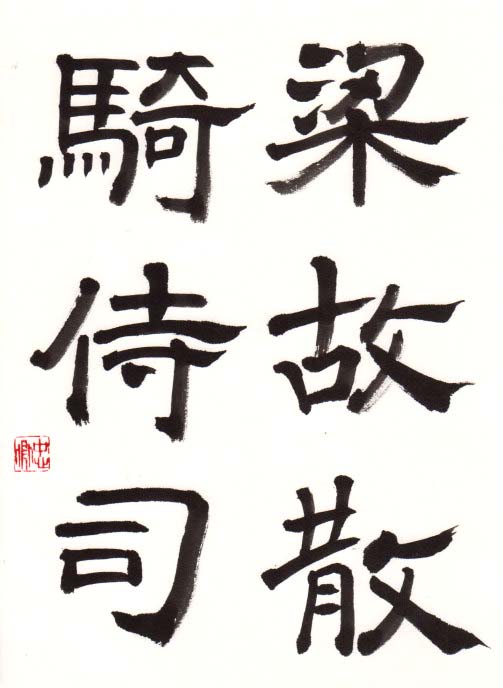 梁故散
騎侍司